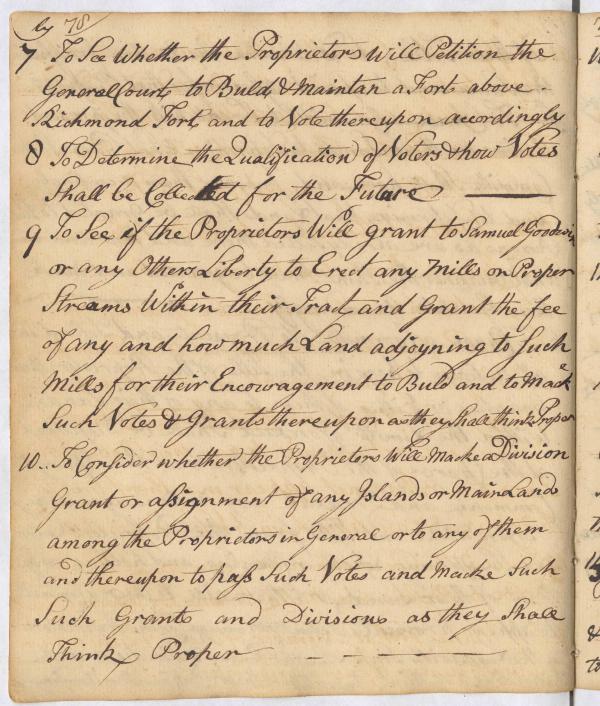 by 78
7 To See Whether the Proprietors Will Petition the
General Court to Buld & Maintan a Fort above
Richmond Fort and to Vote thereupon accordingly
8 To Determine the Qualification of Voters & how Votes
Shall be Collected for the Future
9 To See if the Proprietors Will grant to Samuel Goodwin
or any Others Liberty to Erect any Mills on Proper
Streams Within their Tract and Grant the fee
of any and how much Land adjoyning to Such
Mills for their Encouragement to Buld and to Make
Such Votes & Grants thereupon as they Shall think Proper
10.. To Consider whether the Proprietors Will Macke a Division
Grant or assignment of any Islands or Main Lands
among the Proprietors in General or to any of them
and thereupon to pass Such Votes and Macke Such
Such Grants and Divisions as they Shall
Think Proper